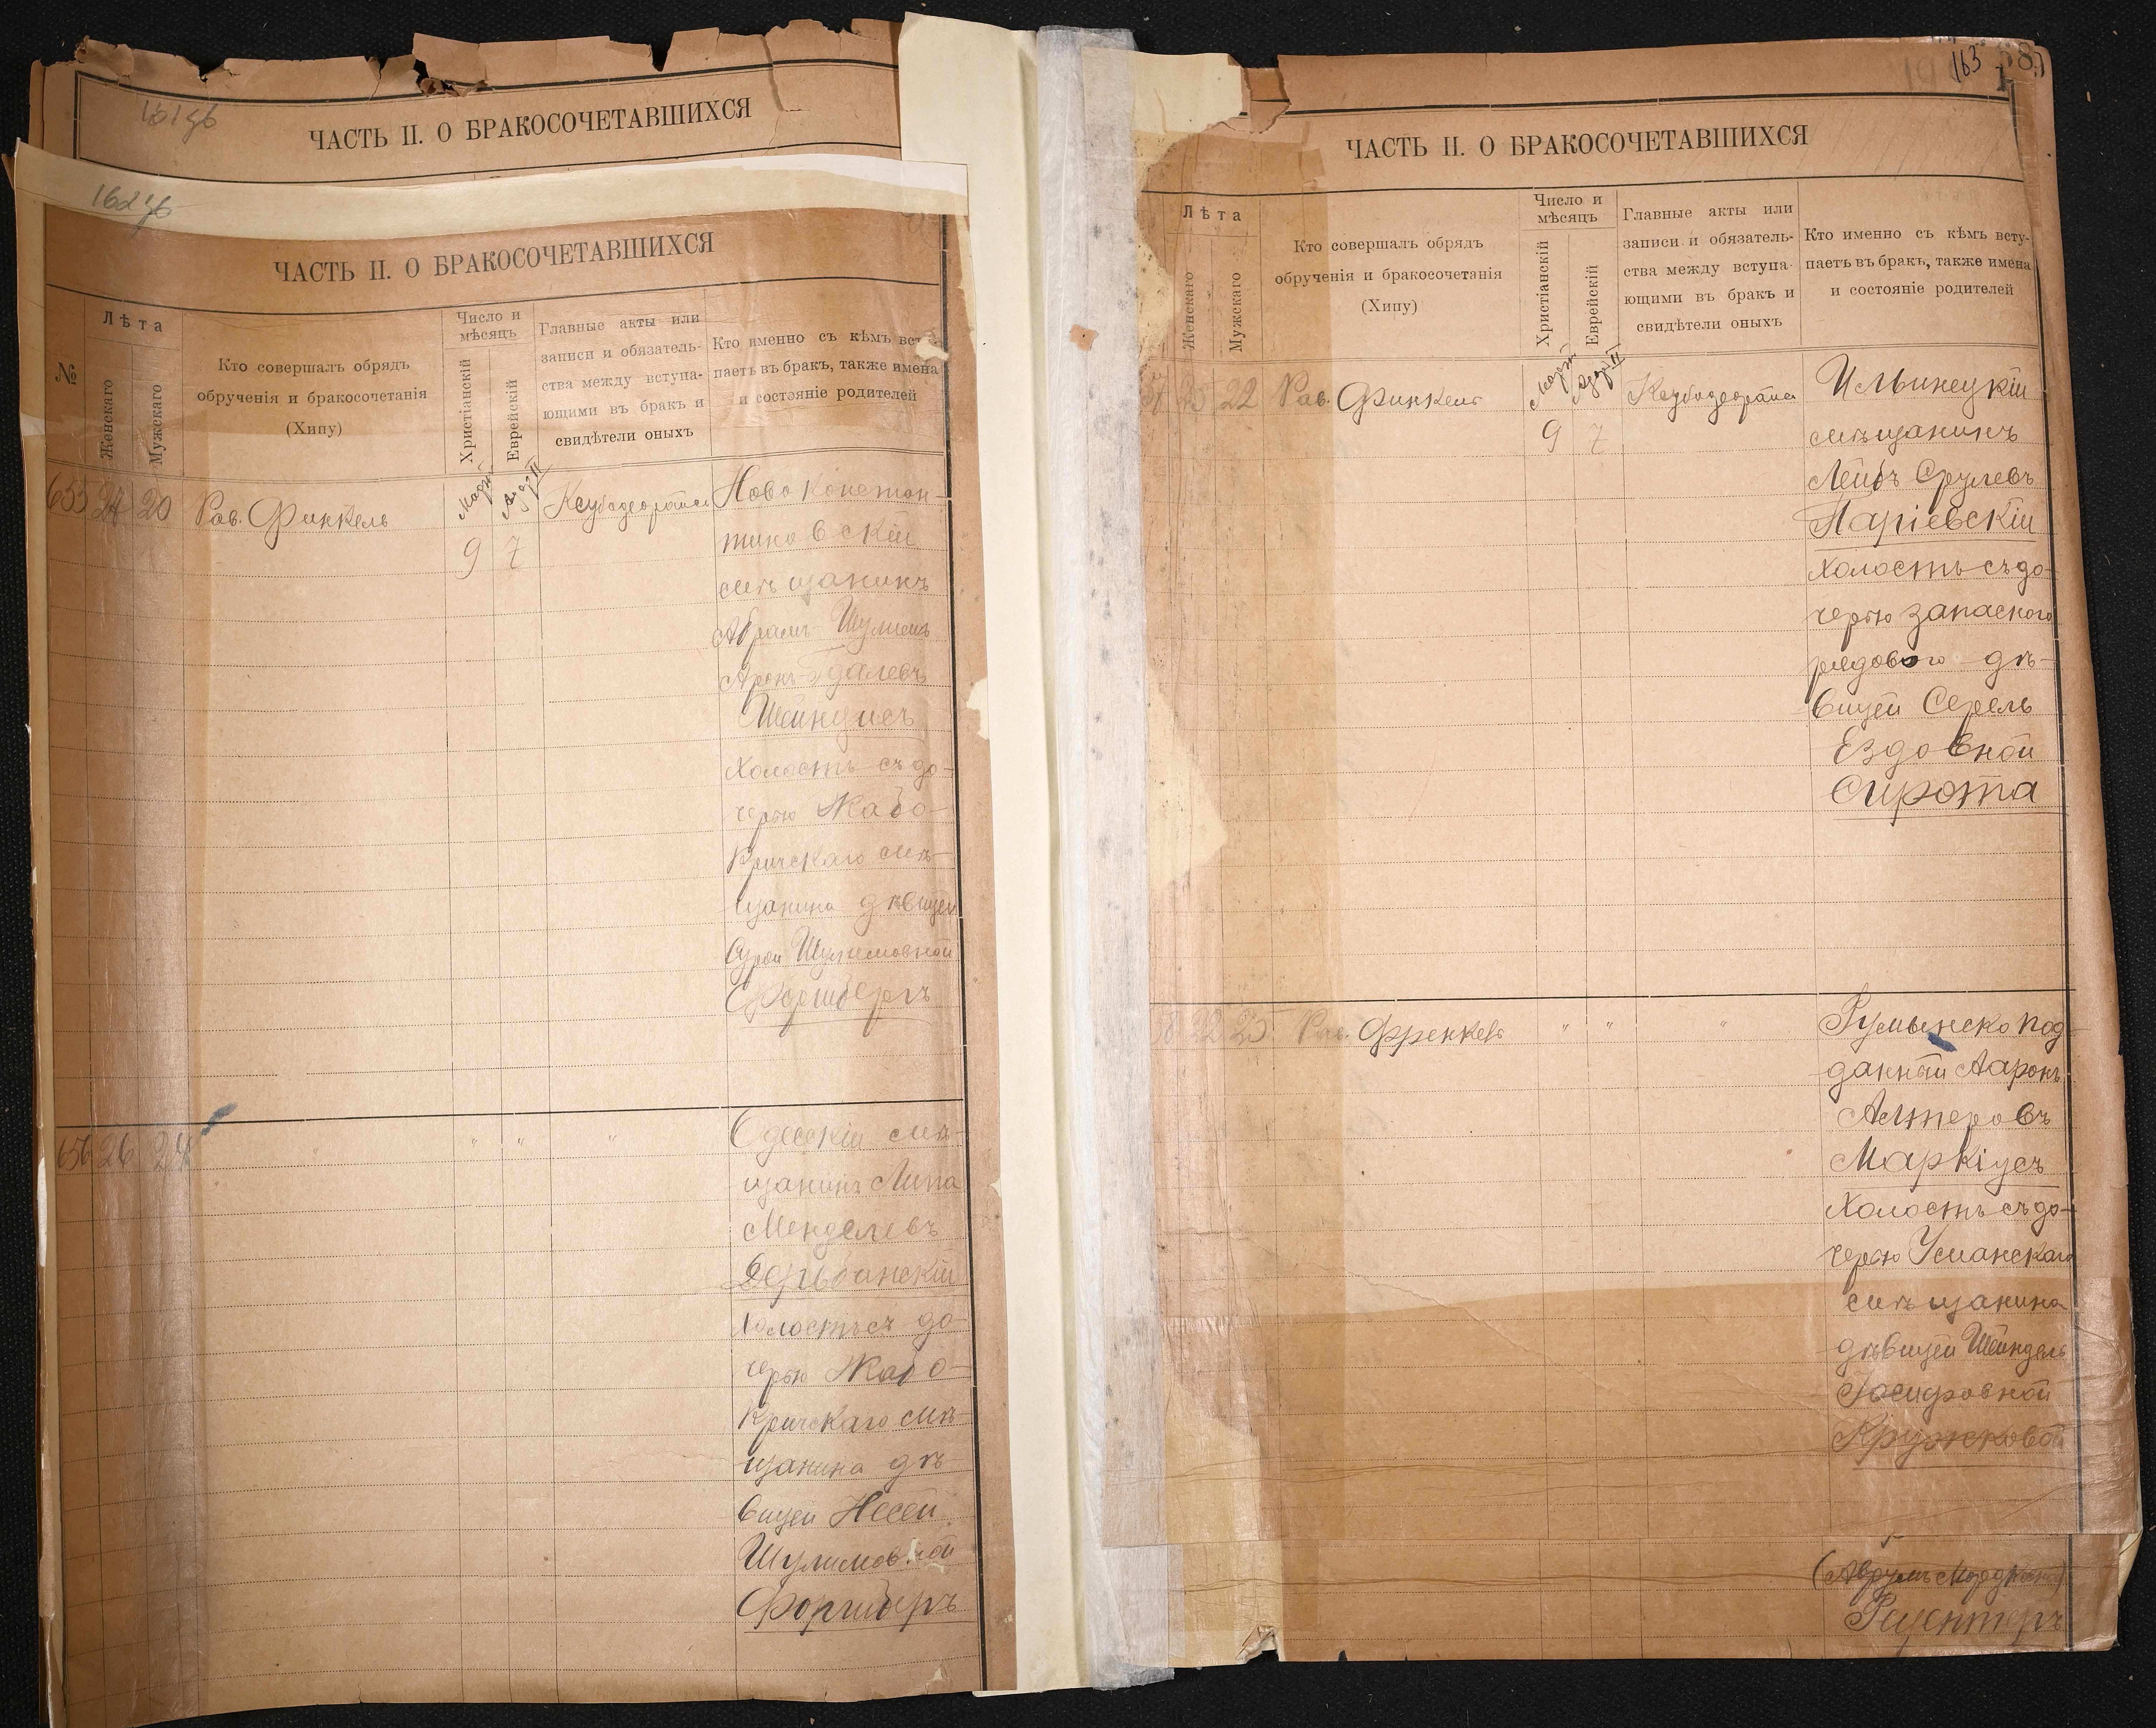 ЧАСТЬ II. О БРАКОСОЧЕТАВШИХСЯ
ЧАСТЬ II. О БРАКОСОЧЕТАВШИХСЯ
№
Лѣта
Женскаго
Мужскаго
Кто совершалъ обрядъ
обрученія и бракосочетанія
(Хипу)
Число и
мѣсяцъ
Христіанскій
Еврейскій
Главные акты или
записи и обязатель-
ства между вступа-
ющими въ бракъ и
свидѣтели оныхъ
Кто именно съ кѣмъ всту-
паетъ въ бракъ, также имена
и состояніе родителей
655 24 20 Рав. Финкель
Мартъ
9 7
Ново Констан-
тиновскій
мѣщанинъ
Абрамъ-Шулимъ
Аронъ-Гдалевъ
Шейндисъ
холостъ съ до-
черью Жабо-
кричскаго мѣ-
щанина дѣвицей
Сурой Шулимовной
656 26 24
" " "
Одесскій мѣ-
щанинъ Липа
Менделевъ
Дерибанскій
холостъ съ до-
черью Жабо-
кричскаго мѣ-
щанина дѣ-
вицей Несей
Шулимовной
163
ЧАСТЬ II. О БРАКОСОЧЕТАВШИХСЯ
Лѣта
Женскаго
Мужскаго
Кто совершалъ обрядъ
обрученія и бракосочетанія
(Хипу)
Число и
мѣсяцъ
Христіанскій
Еврейскій
Главные акты или
записи и обязатель-
ства между вступа-
ющими въ бракъ и
свидѣтели оныхъ
Кто именно съ кѣмъ всту-
паетъ въ бракъ, также имена
и состояніе родителей
22 Рав. Финкель
Мартъ
9 7
Ильинецкій
мѣщанинъ
Лейбъ Срулевъ
Паріевскій
холостъ съ до-
черью запаснаго
рядового дѣ-
вицей Серель
Ездовной
Сирота
22 25 Рав. Френкель
" " "
Румынско под-
данный Ааронъ
Алтеровъ
Маркіусъ
холостъ съ до-
черью Уманскаго
мѣщанина
дѣвицей Шейндель
Іосифовной
Кружковой